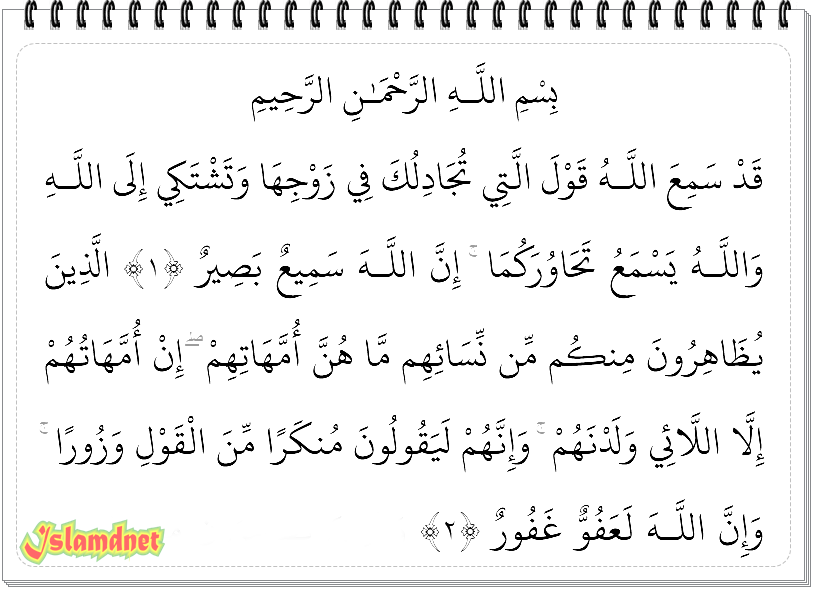 بِسْمِ اللَّـهِ الرَّحْمَـٰنِ الرَّحِيمِ
قَدْ سَمِعَ اللَّـهُ قَوْلَ الَّتِي تُجَادِلُكَ فِي زَوْجِهَا وَتَشْتَكِي إِلَى اللَّـهِ
وَاللَّـهُ يَسْمَعُ تَحَاوُرَكُمَا ۚ إِنَّ اللَّـهَ سَمِيعٌ بَصِيرٌ ﴿١﴾ الَّذِينَ
يُظَاهِرُونَ مِنكُم مِّن نِّسَائِهِم مَّا هُنَّ أُمَّهَاتِهِمْ ۖ إِنْ أُمَّهَاتُهُمْ
إِلَّا اللَّائِي وَلَدْنَهُمْ ۚ وَإِنَّهُمْ لَيَقُولُونَ مُنكَرًا مِّنَ الْقَوْلِ وَزُورًا ۚ
وَإِنَّ اللَّـهَ لَعَفُوٌّ غَفُورٌ ﴿٢﴾
Islamdnet